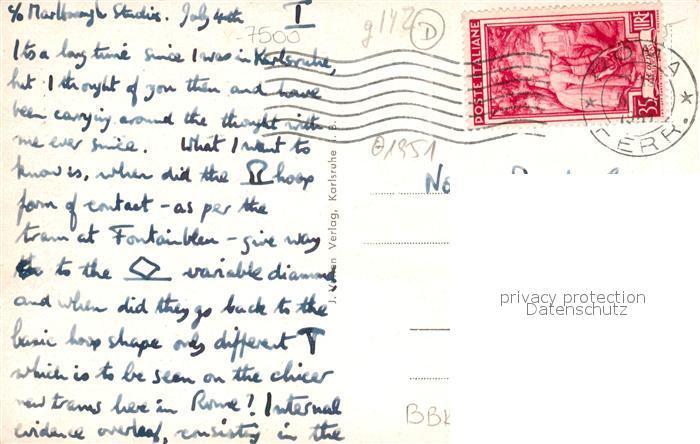 c/o Marlborough Studios. July 4th I
7500
g142 D
Its a long time since I was in Karlsruhe,
but I thought of you then and have
been carrying around the thought with
me ever since. What I want to
know is, when did the hoop
form of contact - as per the
tram at Fontainbleu - give way
to the variable diamond
and when did they go back to the
basic hoop shape only different
which is to be seen on the chicer
new trams here in Rome? Internal
evidence overleaf, consisting in the
POSTE ITALIANE
LIRE
35
ROMA
FERR.
1951
J. Verlag, Karlsruhe i. B.
No
BBK
privacy protection
Datenschutz